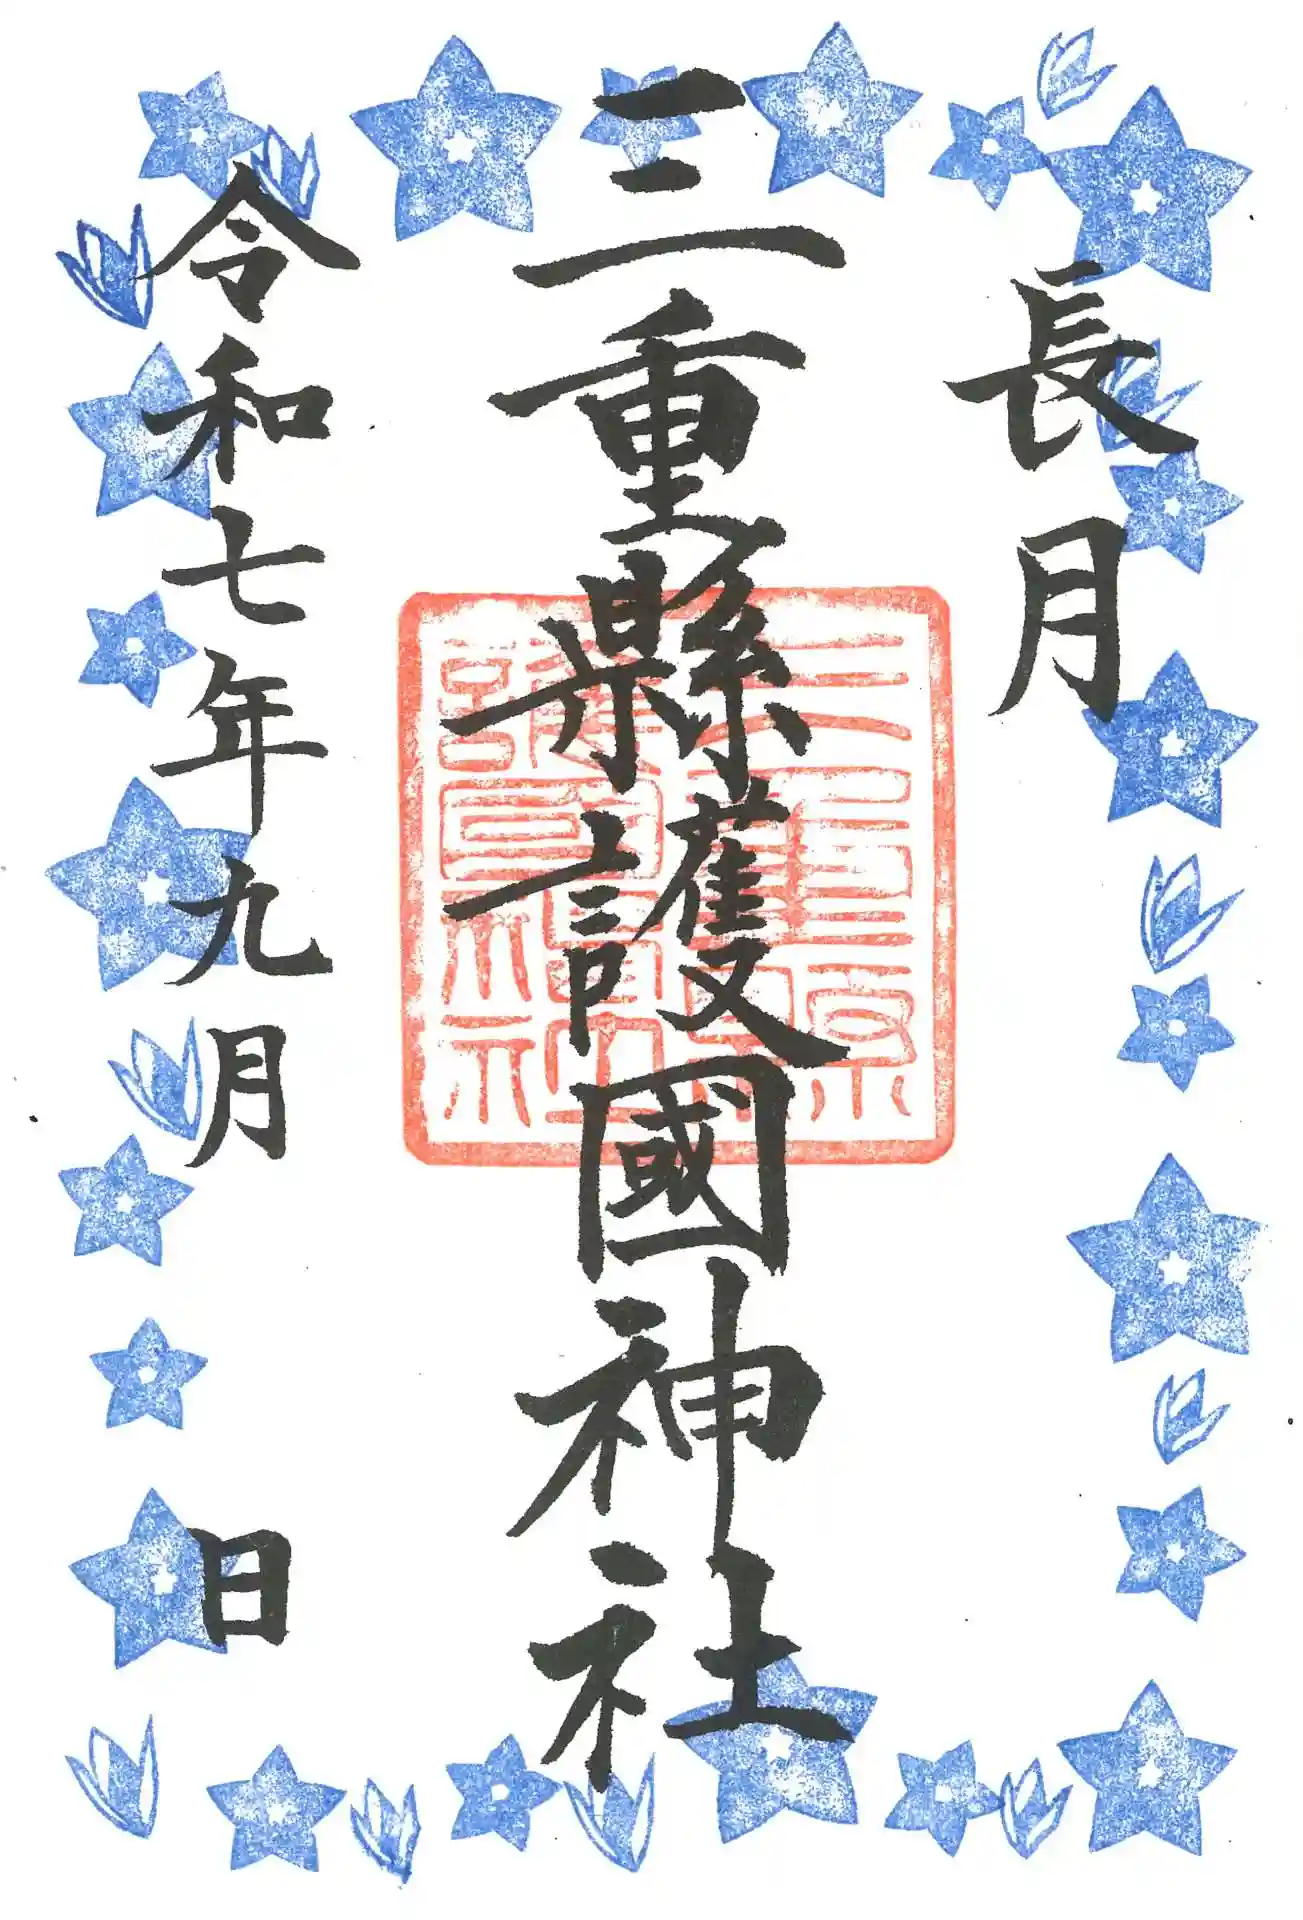 長月
三重縣護國神社
三重縣護國神社
令和七年九月 日